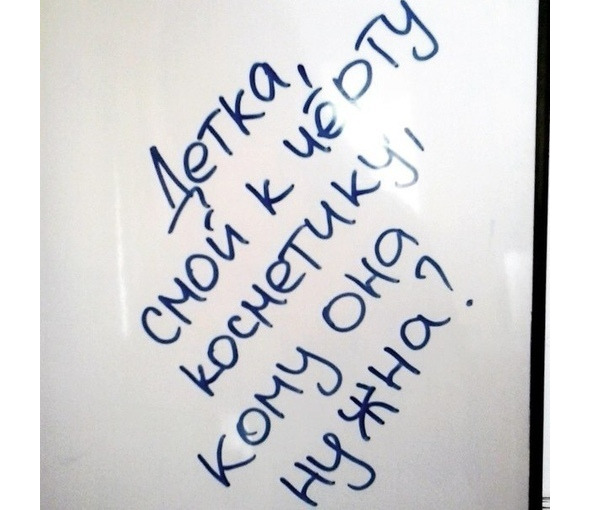 Детка,
смой к чёрту
косметику,
кому она
нужна?